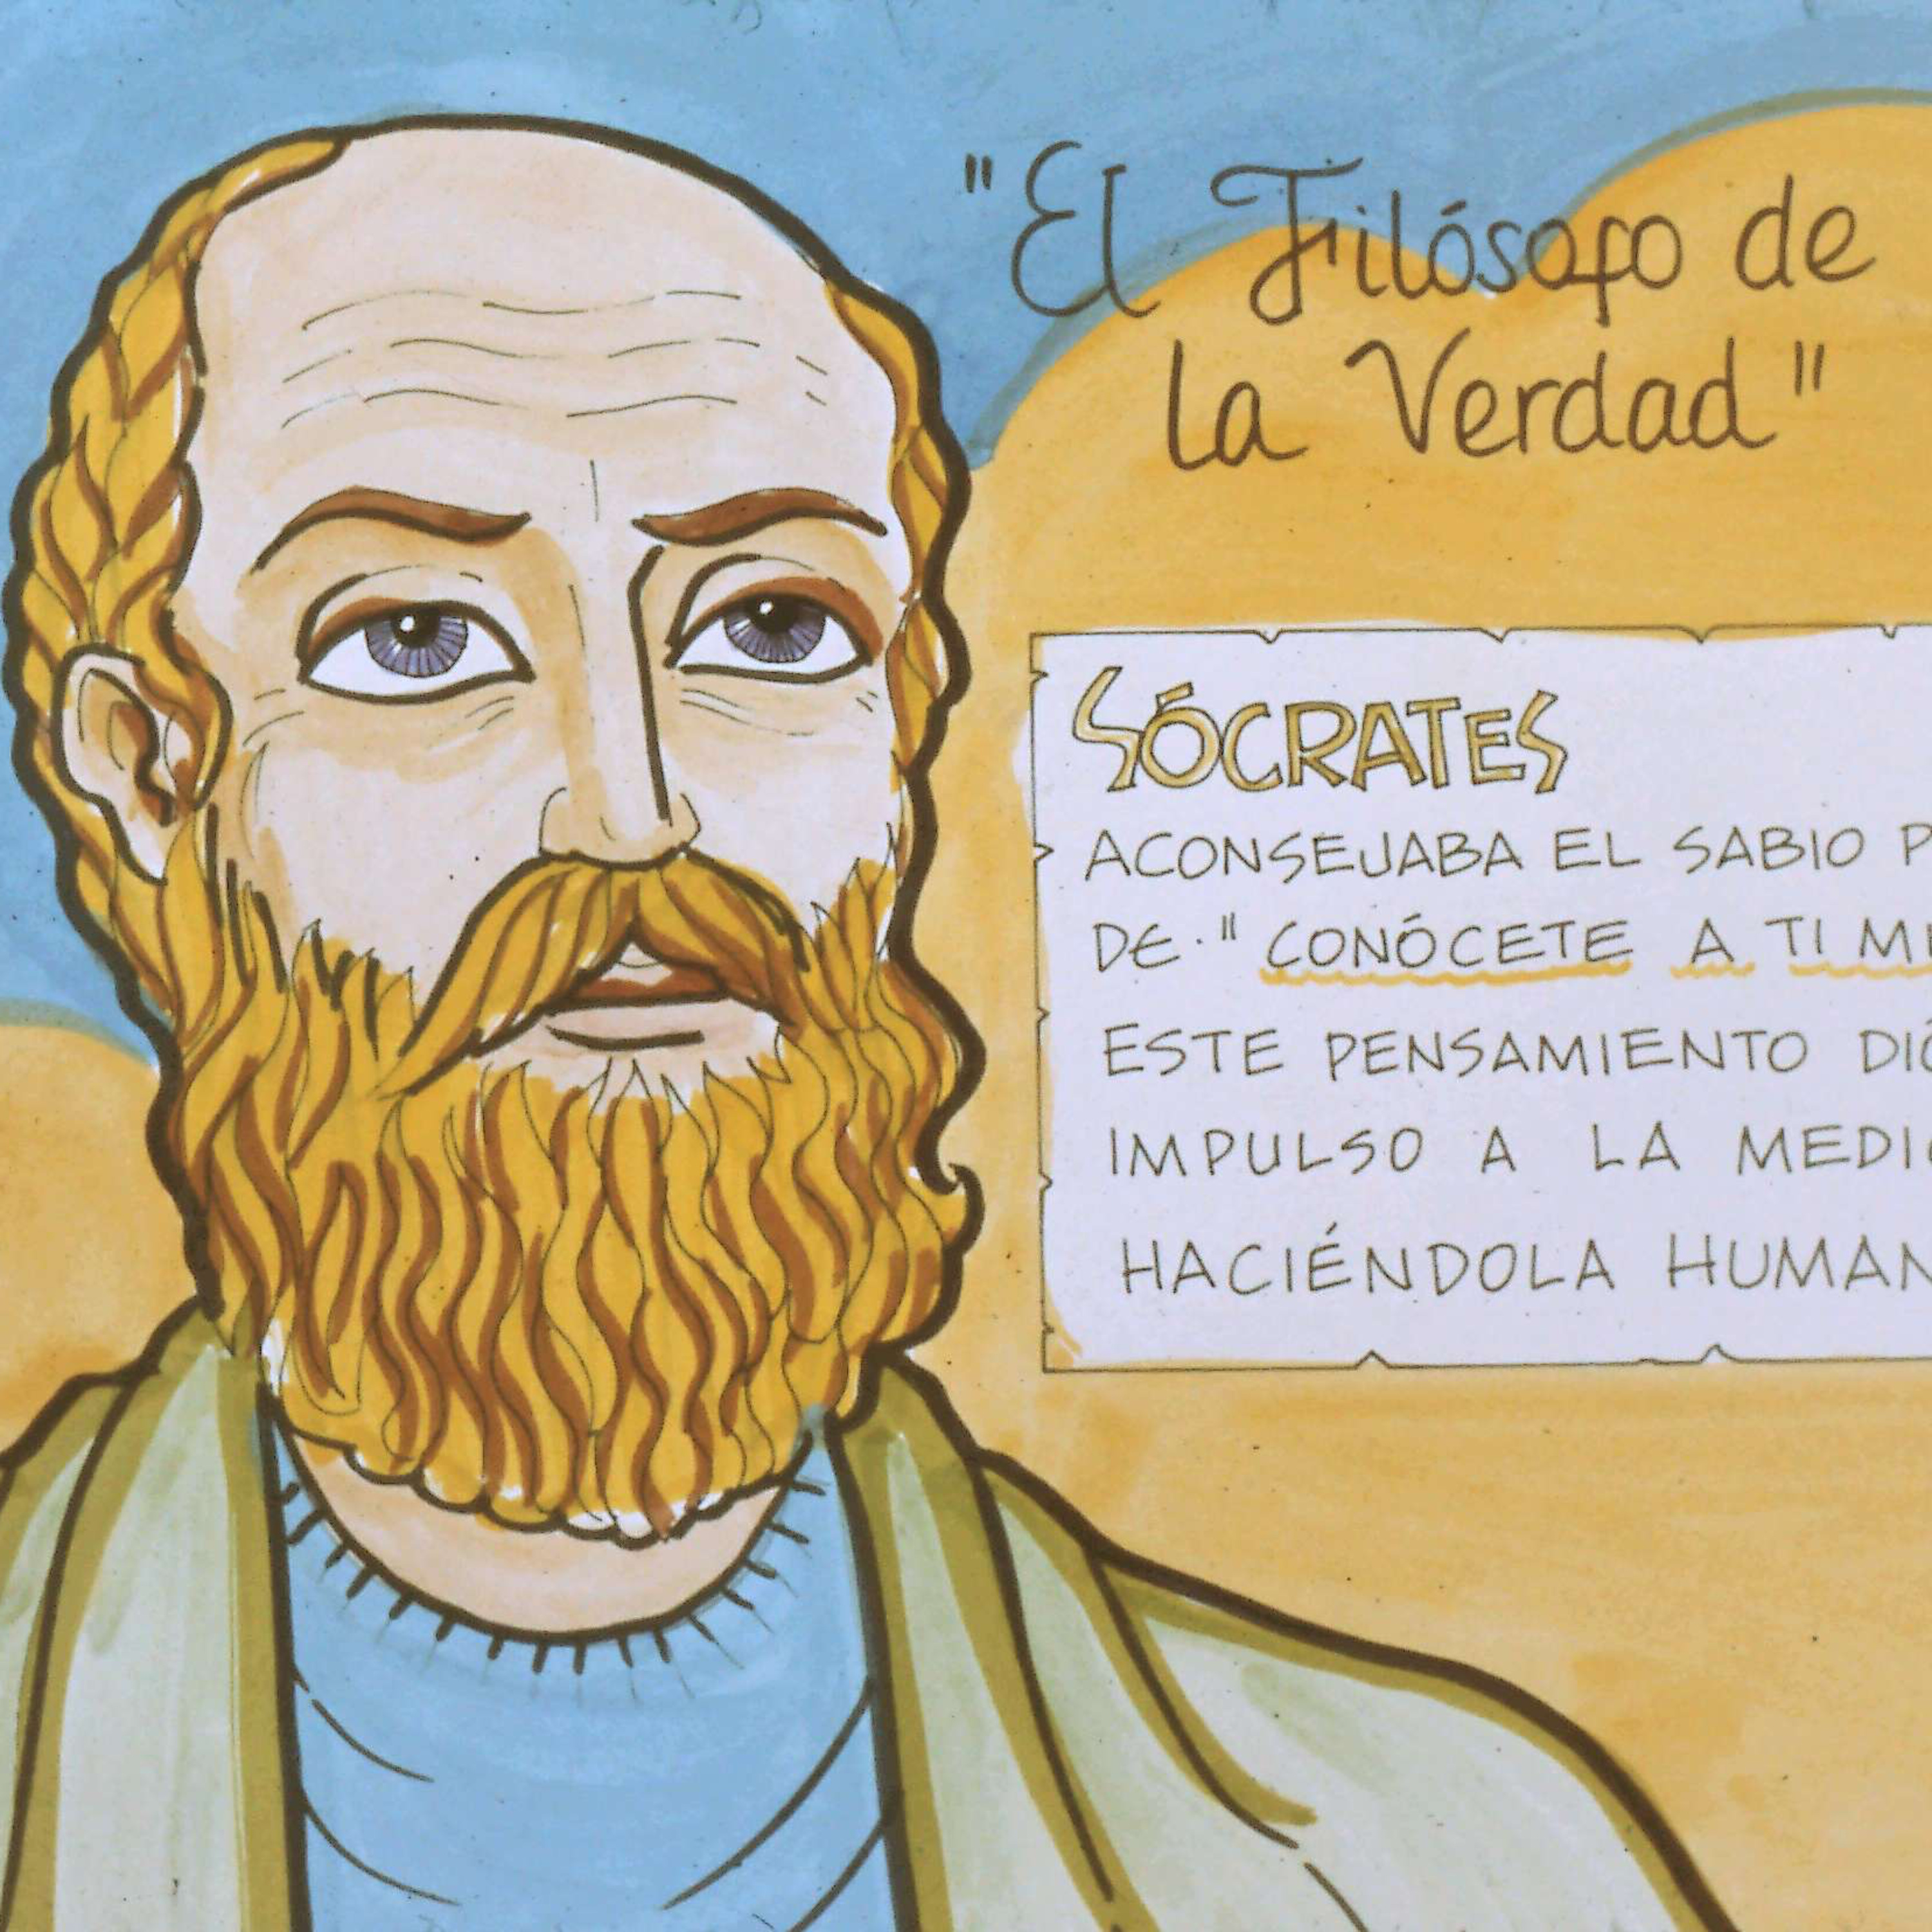 "El Filósofo de
la Verdad"
SÓCRATES
ACONSEJABA EL SABIO
DE "CONÓCETE A TI
ESTE PENSAMIENTO
IMPULSO A LA
HACIÉNDOLA